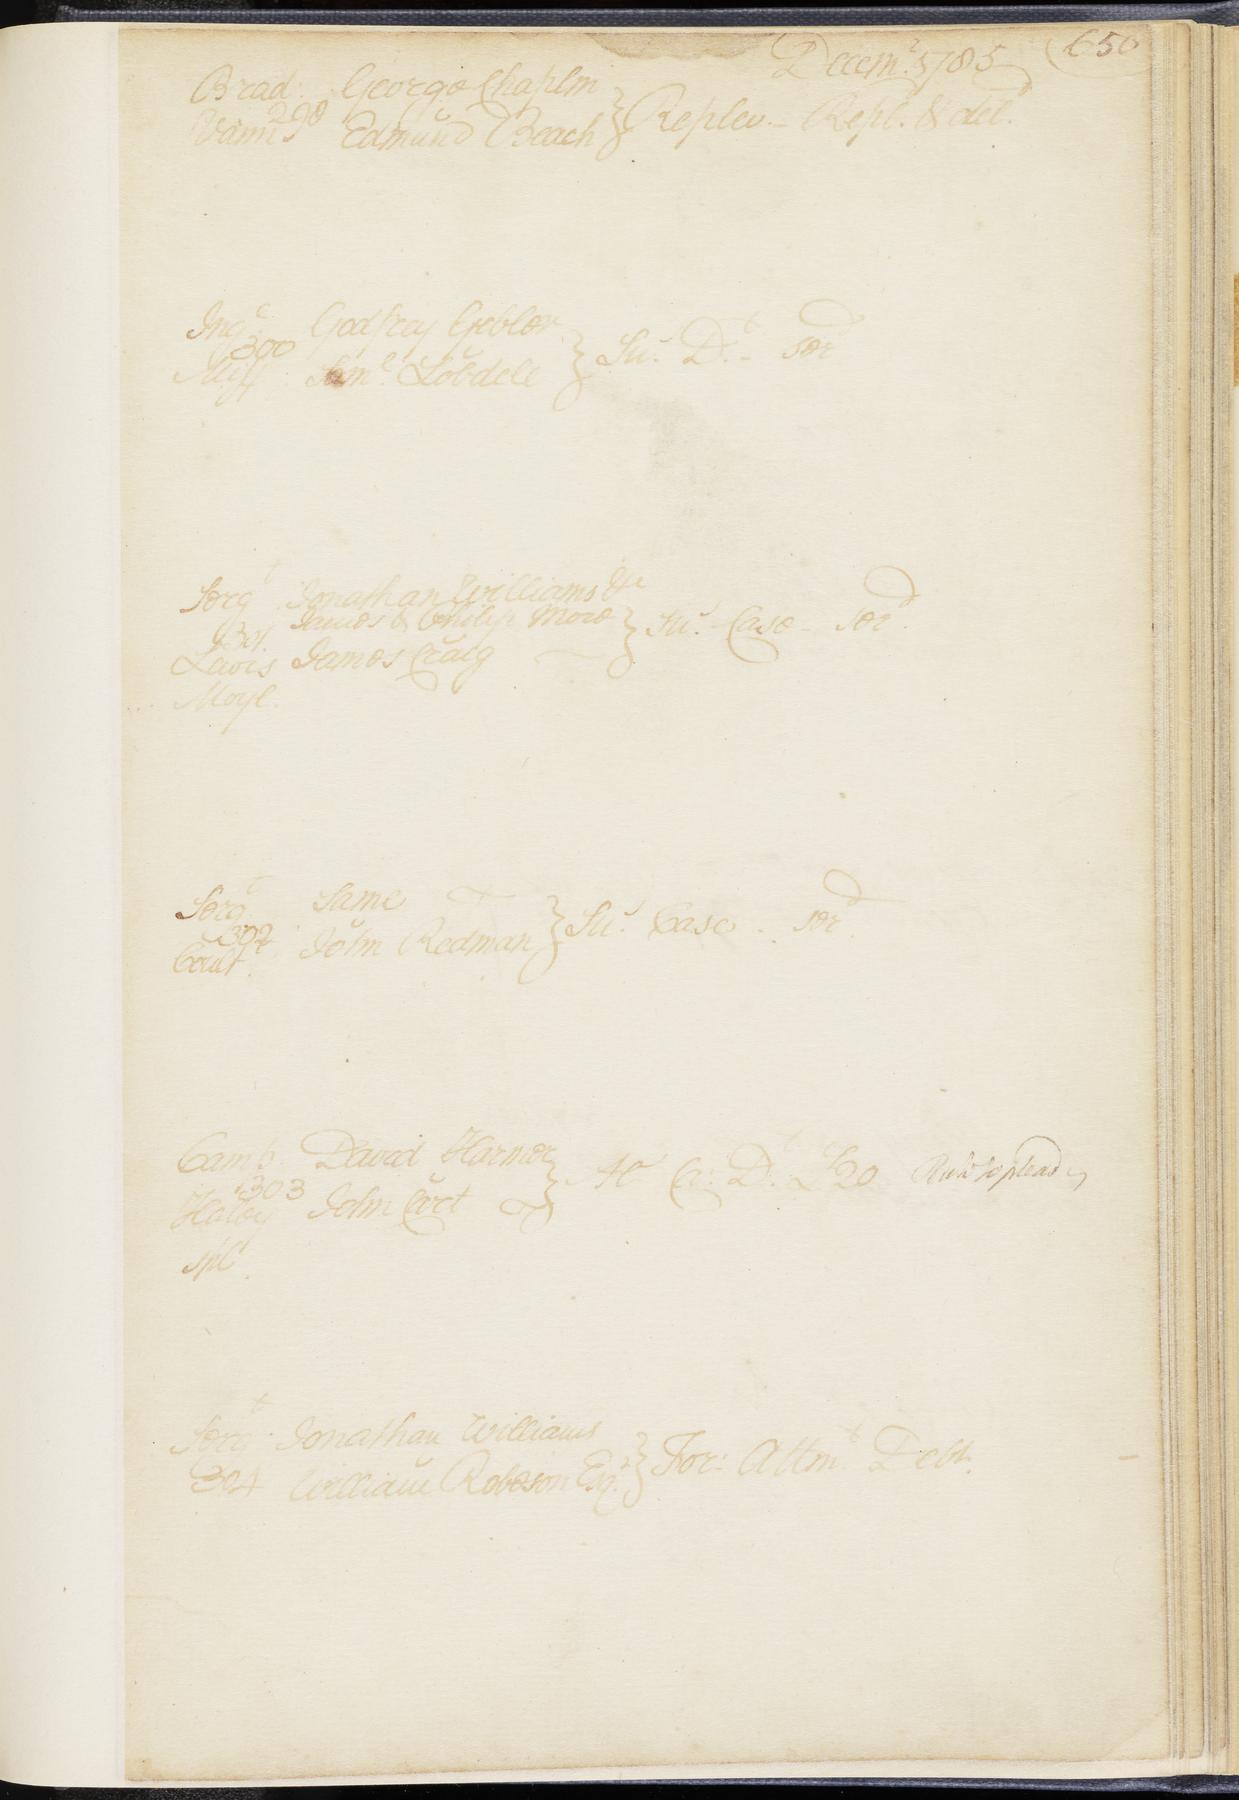 Decemr. 1785 650
Brad. George Chaplin
298 } Replev. - Repl. & deld.
Vann Edmund Beach
Ingl. Godfrey Gebler
300 } Su. Dt. - serd
Miff. Saml. Lobdell
Sergt Jonathan Williams &c
James & Philip More } Su. Case - serd.
301.
Lewis James Craig
Moyl.
Sergt Same
302 } Su. Case. serd
Coult. John Redman
Camb. David Harmer
303 } Ca. Dt. £20 Rule to plead
Haley John Cort
spl.
Sergt Jonathan Williams
} For: Attmt. Debt.
304 William Robeson Esqr.